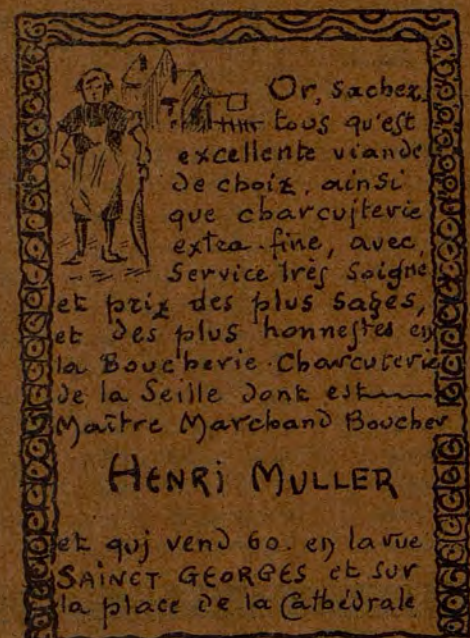 Or, sachez
tous qu'est
excellente viande
de choix, ainsi
que charcujterie
extra-fine, avec
Service très Soigné
et prix des plus sages,
et des plus honnestes en
la Boucherie-Charcuterie
de la Seille dont est
Maître Marchand Boucher
HENRI MULLER
et quj vend 60. en la rue
SAINCT GEORGES et sur
la place de la Cathédrale